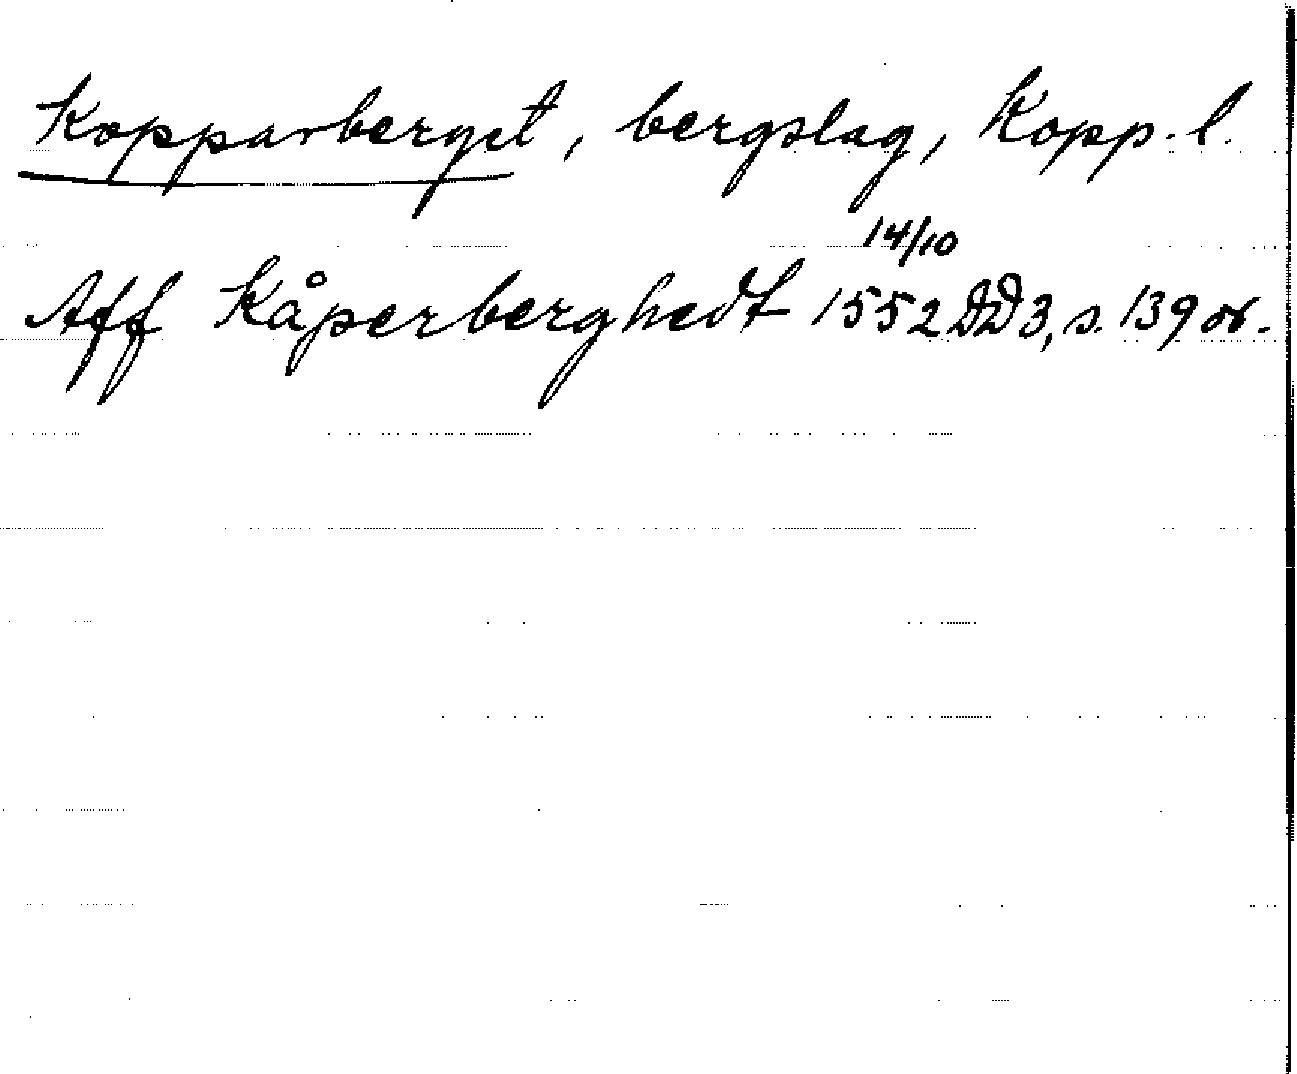 Kopparberget, bergslag, Kopp. l.
14/10
Aff Kåperberghedt 1552 DD 3, s. 139 or.